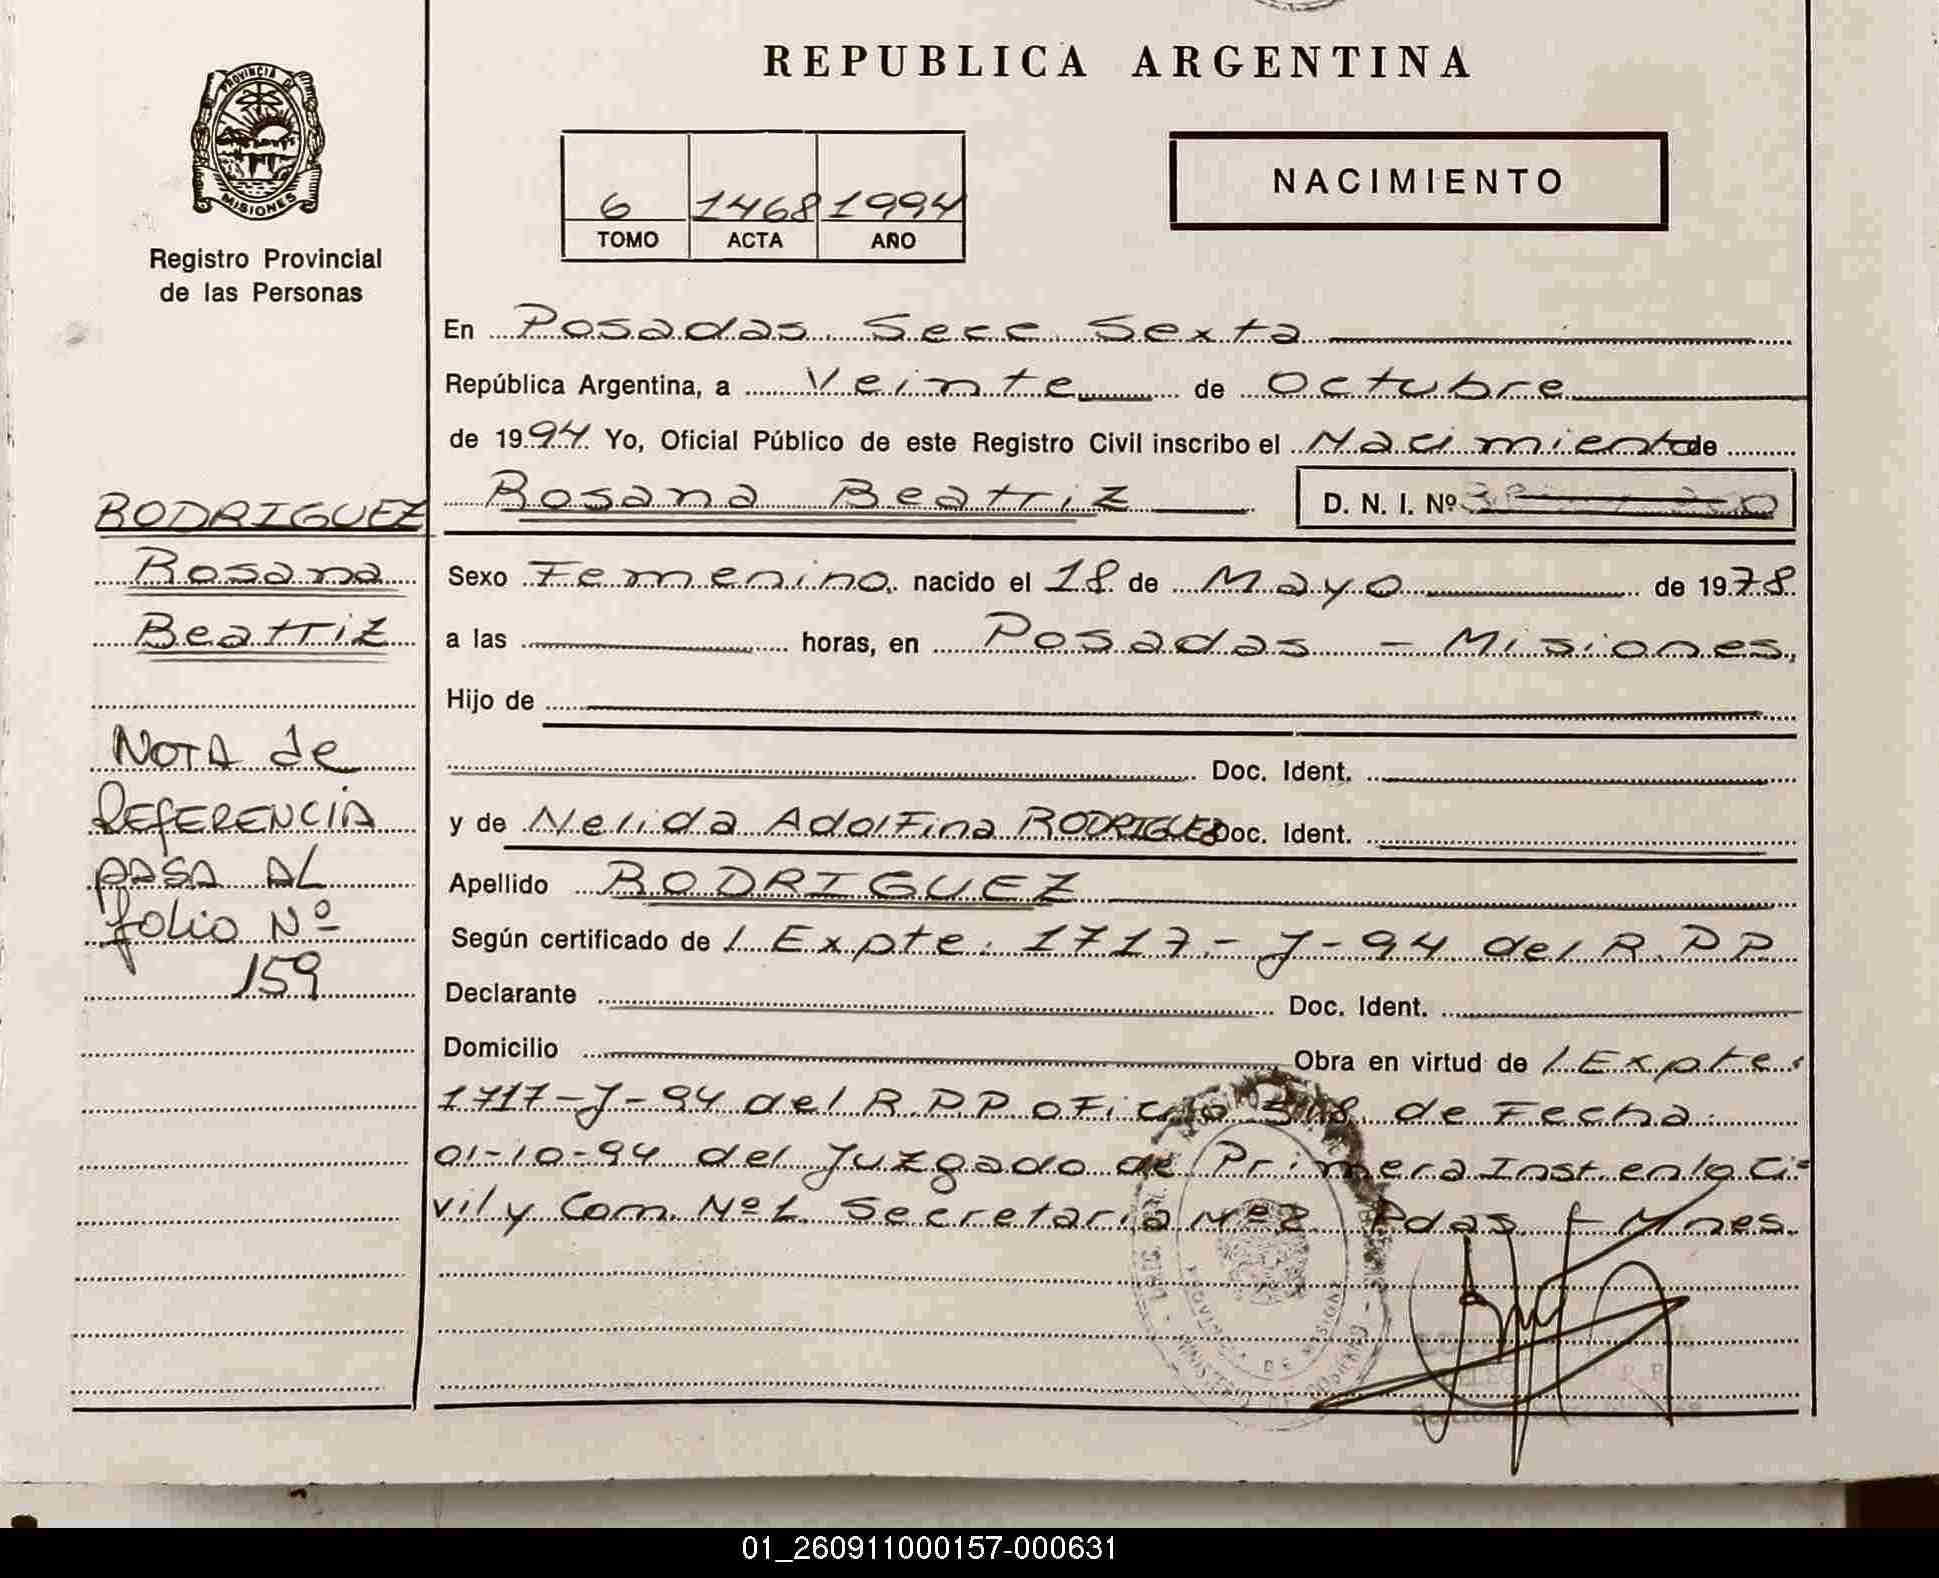 REPUBLICA ARGENTINA
PROVINCIA DE
MISIONES
Registro Provincial
de las Personas
6 1468 1994
TOMO ACTA AÑO
NACIMIENTO
En Posadas Secc Sexta
República Argentina, a Veinte de Octubre
de 1994 Yo, Oficial Público de este Registro Civil inscribo el Nacimiento de
Rosana Beatriz D. N. I. Nº
Sexo Femenino, nacido el 18 de Mayo de 1978
a las horas, en Posadas - Misiones,
Hijo de
Doc. Ident.
y de Nelida Adolfina RODRIGUEZ Doc. Ident.
Apellido RODRIGUEZ
Según certificado de / Expte. 1717-J-94 del R.P.P.
Declarante Doc. Ident.
Domicilio Obra en virtud de / Expte.
1717-J-94 del R.P.P oficio 518 de Fecha
01-10-94 del Juzgado de Primera Inst. en lo Ci=
vil y Com. Nº1 Secretaria Nº2 Pdas - Mnes.
RODRIGUEZ
Rosana
Beatriz
NOTA de
REFERENCIA
PASA AL
folio Nº
159
PROVINCIA DE MISIONES
01_260911000157-000631